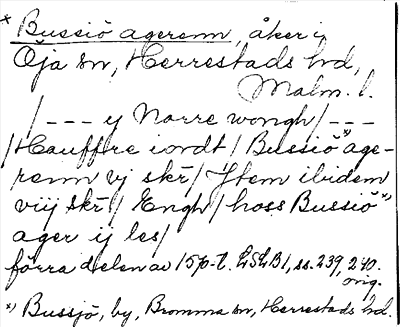 * Bussiö agerenn, åker i
Öja sn, Herrestads hd,
Malm. l.
/ - - - y Norre wongh / - - -
/ Hauffre iordt / Bussiö *) age-
renn vj skr / Ytem ibidem
viij skr / Engh / hoss Bussiö *)
ager ij les /
förra delen av 15/0-t. LSLB 1, ss. 239, 240.
orig.
*) Bussjö, by, Bromma sn, Herrestads hd.